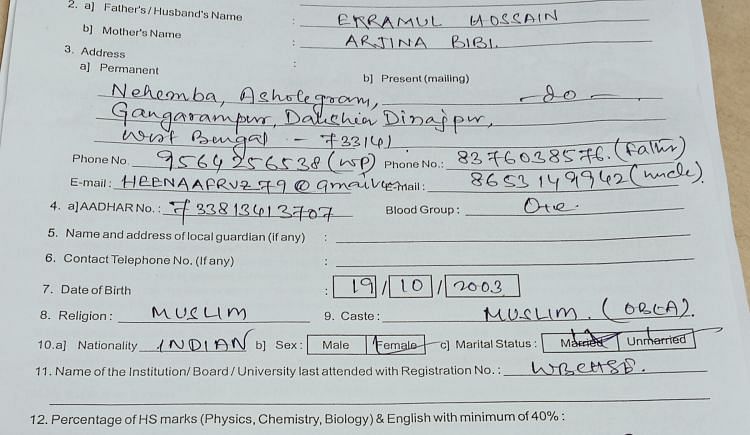 2. a] Father's/Husband's Name : EKRAMUL HOSSAIN
b] Mother's Name : ARJINA BIBI.
3. Address :
a] Permanent b] Present (mailing)
Nehemba, Ashokegram, - do -
Gangarampur, Dakshin Dinajpur,
West Bengal - 733141
Phone No. 9564256538 (wp) Phone No.: 8376038576. (Father)
E-mail: HEENAAFRUZ79@gmail E-mail: 8653149942 (uncle).
4. a]AADHAR No.: 733813413707 Blood Group: O+ve.
5. Name and address of local guardian (if any) :
6. Contact Telephone No. (If any) :
7. Date of Birth : 19 / 10 / 2003
8. Religion: MUSLIM 9. Caste: MUSLIM. (OBC-A).
10.a] Nationality INDIAN b] Sex: Male Female c] Marital Status: Married Unmarried
11. Name of the Institution/ Board / University last attended with Registration No.: WBCHSE.
12. Percentage of HS marks (Physics, Chemistry, Biology) & English with minimum of 40% :